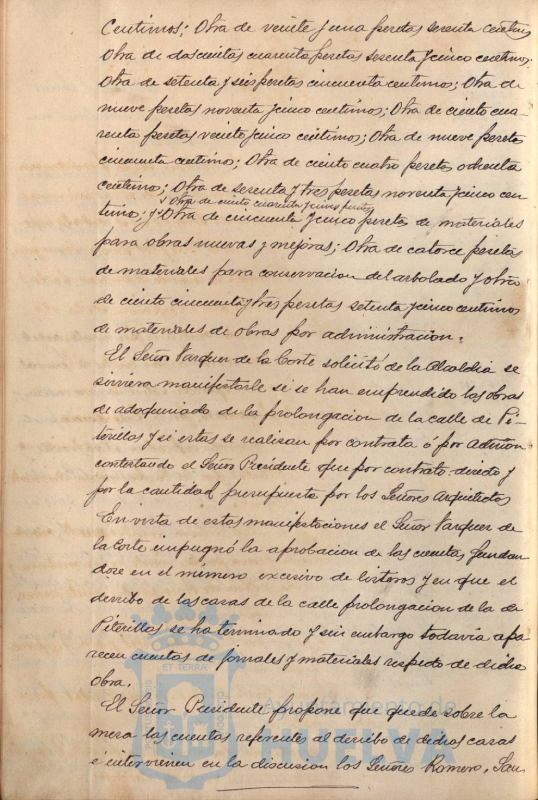 Centimos; Otra de veinte y una pesetas sesenta centimos
Otra de doscientas cuarenta pesetas sesenta y cinco centimos.
Otra de setenta y seis pesetas cincuenta centimos; Otra de
nueve pesetas noventa y cinco centimos; Otra de ciento cua-
renta pesetas veinte y cinco centimos; Otra de nueve pesetas
cincuenta centimos; Otra de ciento cuatro pesetas ochenta
centimos; Otra de sesenta y tres pesetas noventa y cinco cen
Otra de ciento cuarenta y nueve pesetas
timos; y Otra de cincuenta y cinco pesetas de materiales
para obras nuevas y mejoras; Otra de catorce pesetas
de materiales para conservacion del arbolado y otra
de ciento cincuenta y tres pesetas setenta y cinco centimos
de materiales de obras por administracion.
El Señor Vazquez de la Corte solicitó de la Alcaldia se
sirviera manifestarle si se han emprendido las obras
de adoquinado de la prolongacion de la calle de Pi-
terillos y si estas se realisan por contrata ó por admon
contestando el Señor Presidente que por contrato directo y
por la cantidad presupuesta por los Señores Arquitectos
En vista de estas manifestaciones el Señor Vazquez de
la Corte impugnó la aprobacion de las cuentas fundan
dose en el número excesivo de listeros y en que el
derribo de las casas de la calle prolongacion de la de
Piterillos se ha terminado y sin embargo todavia apa
recen cuentas de jornales y materiales respecto de dicha
obra.
El Señor Presidente propone que quede sobre la
mesa las cuentas referentes al derribo de dichas casas
é intervienen en la discusion los Señores Romero, San
ET TERRA
HUELVA